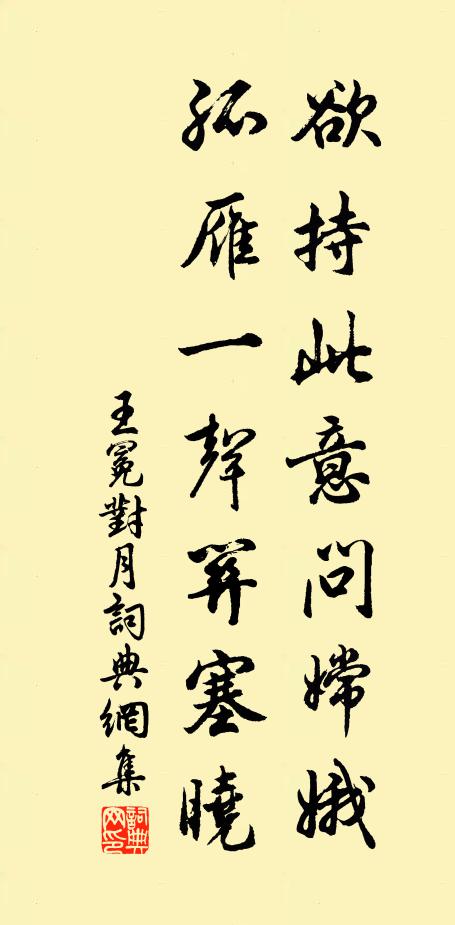 欲持此意問嫦娥
孤雁一聲關塞曉
王冕對月詞典網集
詞典網印